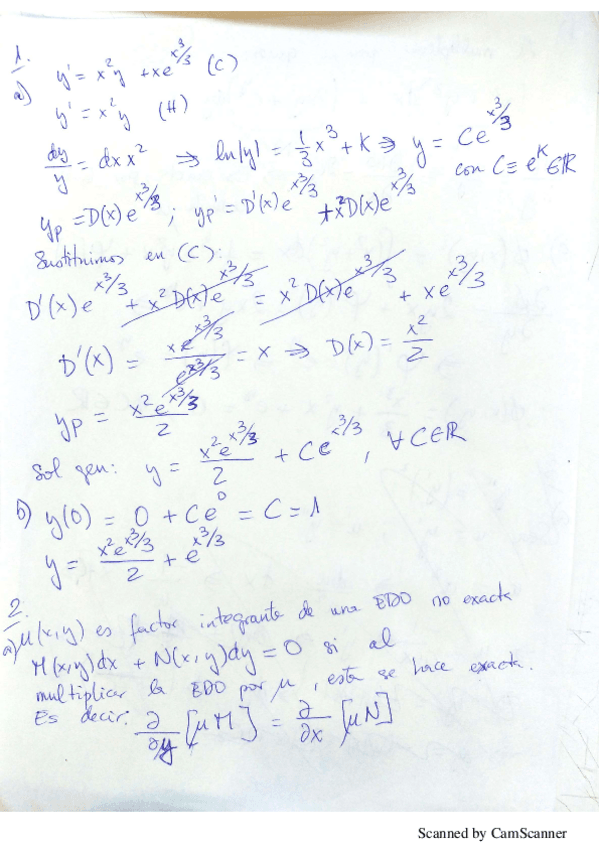 1.
a) y' = x²y + xe^{x³/3} (C)
y' = x²y (H)
dy/y = dx x² ⇒ ln|y| = 1/3 x³ + K ⇒ y = Ce^{x³/3}
con C ≡ e^K ∈ ℝ
yp = D(x)e^{x³/3}; yp' = D'(x)e^{x³/3} + x²D(x)e^{x³/3}
Sustituimos en (C):
D'(x)e^{x³/3} + x²D(x)e^{x³/3} = x²D(x)e^{x³/3} + xe^{x³/3}
D'(x) = xe^{x³/3}/e^{x³/3} = x ⇒ D(x) = x²/2
yp = x²e^{x³/3}/2
Sol gen: y = x²e^{x³/3}/2 + Ce^{x³/3}, ∀C∈ℝ
b) y(0) = 0 + Ce⁰ = C = 1
y = x²e^{x³/3}/2 + e^{x³/3}
2.
a) μ(x,y) es factor integrante de una EDO no exacta
M(x,y)dx + N(x,y)dy = 0 si al
multiplicar la EDO por μ, esta se hace exacta.
Es decir: ∂/∂y [μM] = ∂/∂x [μN]
Scanned by CamScanner